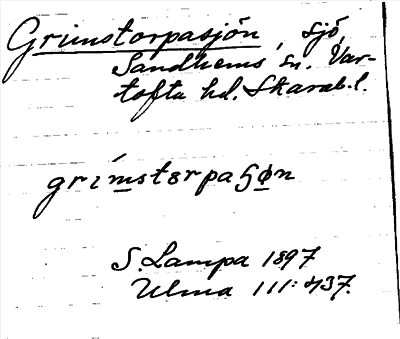 Grimstorpasjön, sjö,
Sandhems sn. Var-
tofta hd. Skarab.l.
grímstɐrpaɧøn
S. Lampa 1897
Ulma 111:437.